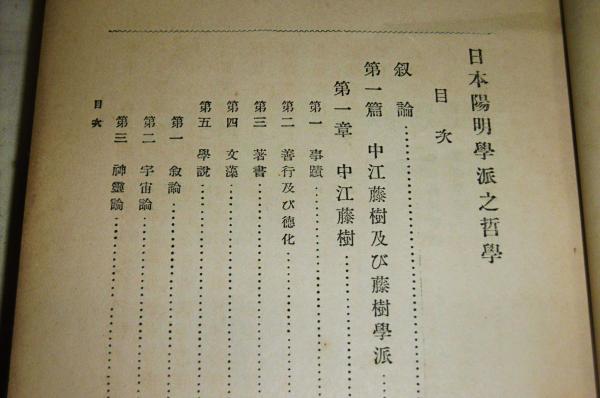 日本陽明學派之哲學
目次
叙論
第一篇 中江藤樹及び藤樹學派
第一章 中江藤樹
第一 事蹟
第二 善行及び德化
第三 著書
第四 文藻
第五 學說
第一 叙論
第二 宇宙論
第三 神靈論
目次